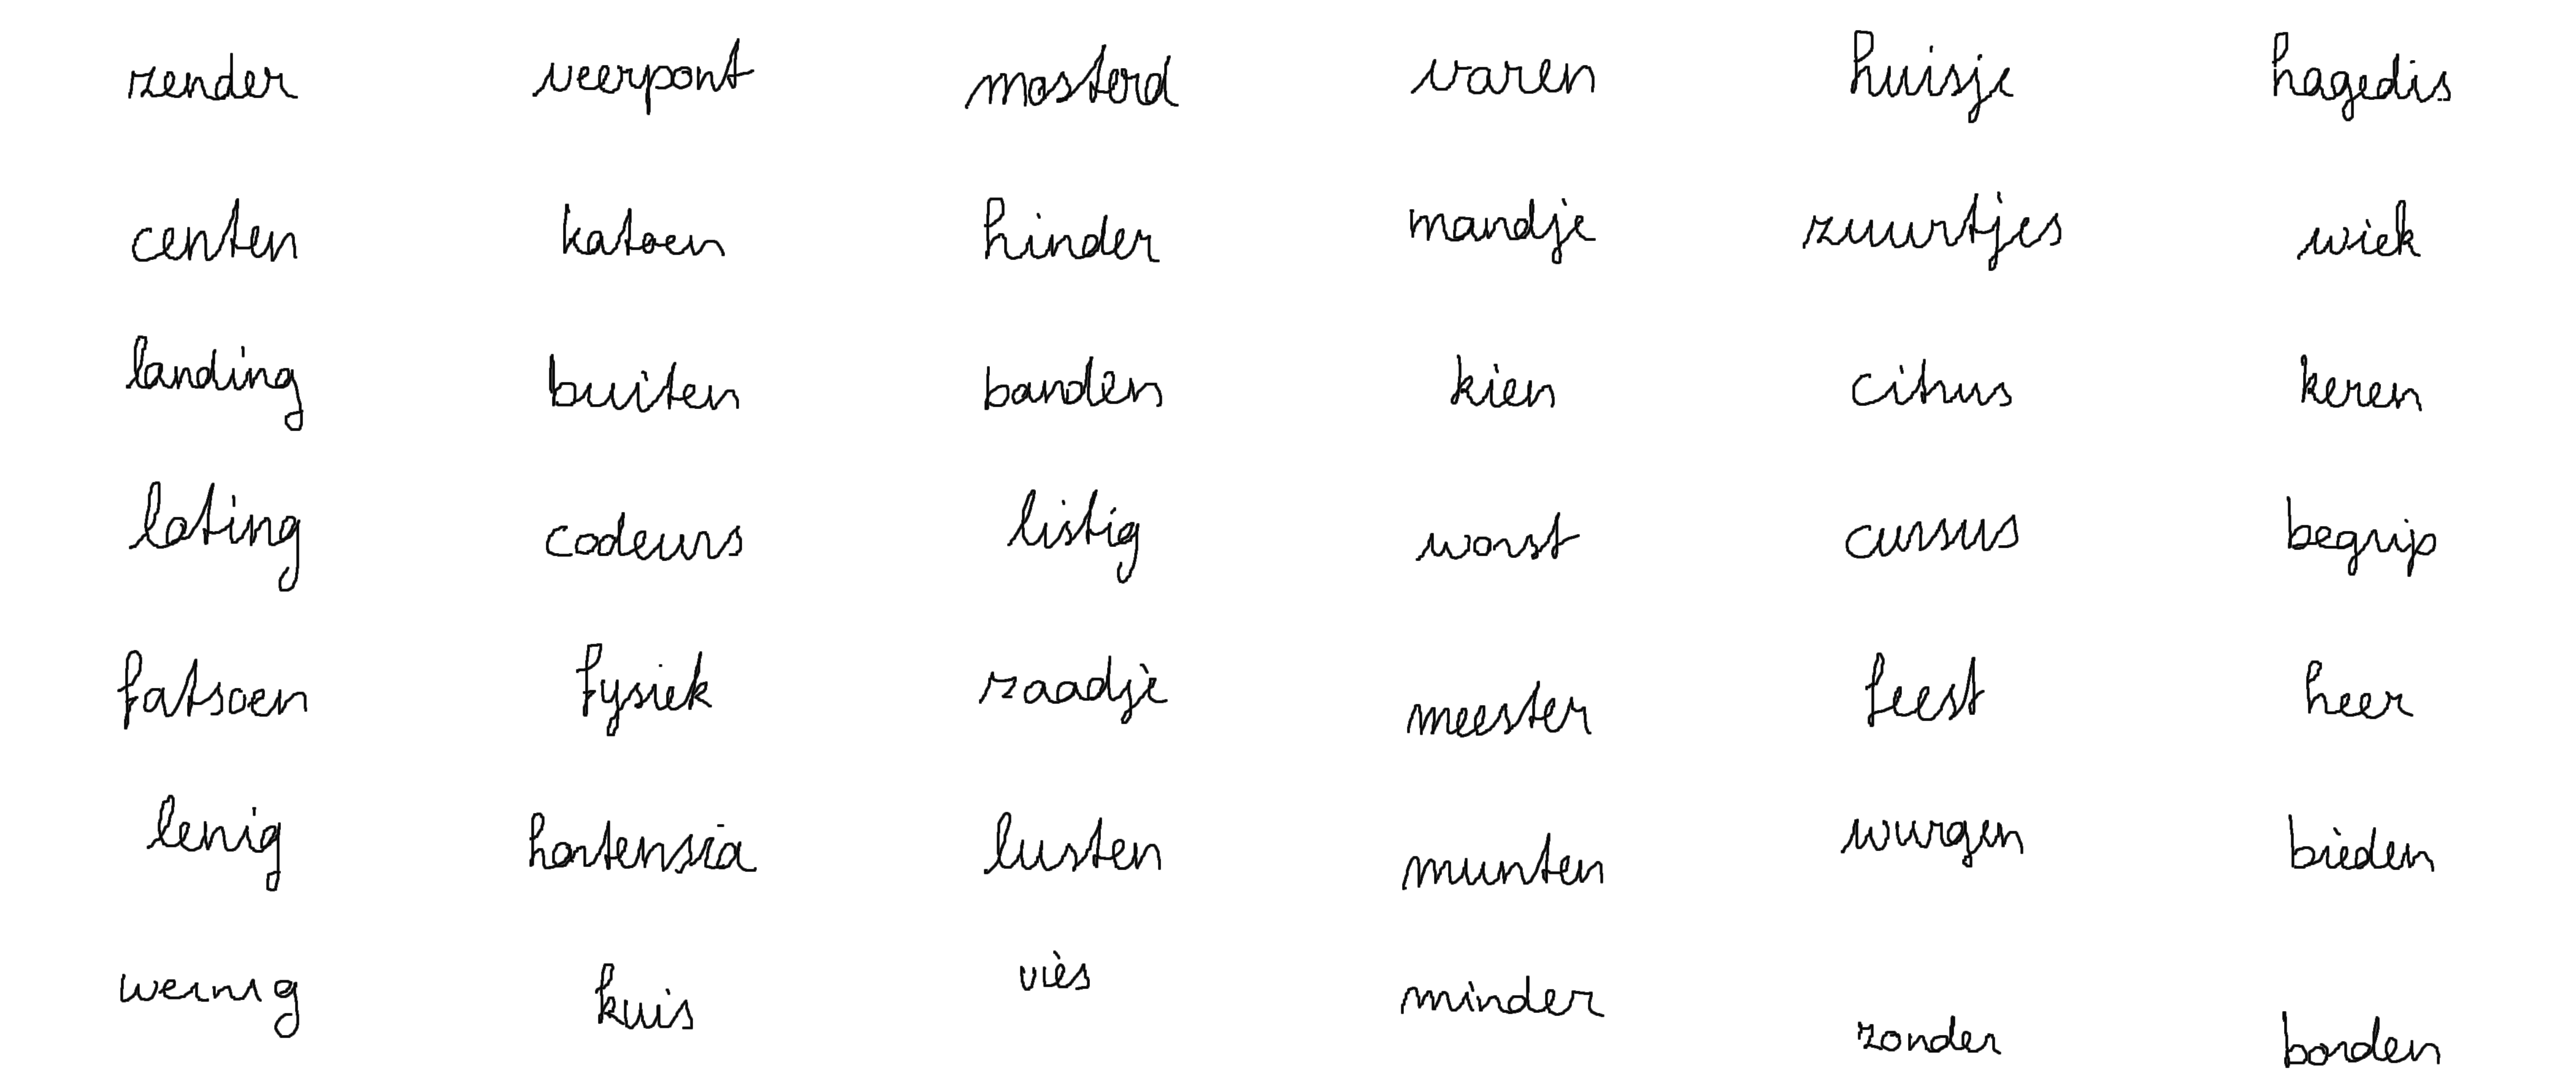 zender veerpont mosterd varen huisje hagedis
centen katoen hinder mandje zuurtjes wiek
landing buiten banden kien citrus keren
lating codeurs listig worst cursus begrip
fatsoen fysiek zaadje meester feest heer
lenig hortensia lusten munten wurgen bieden
weinig kuis vies minder zonder borden